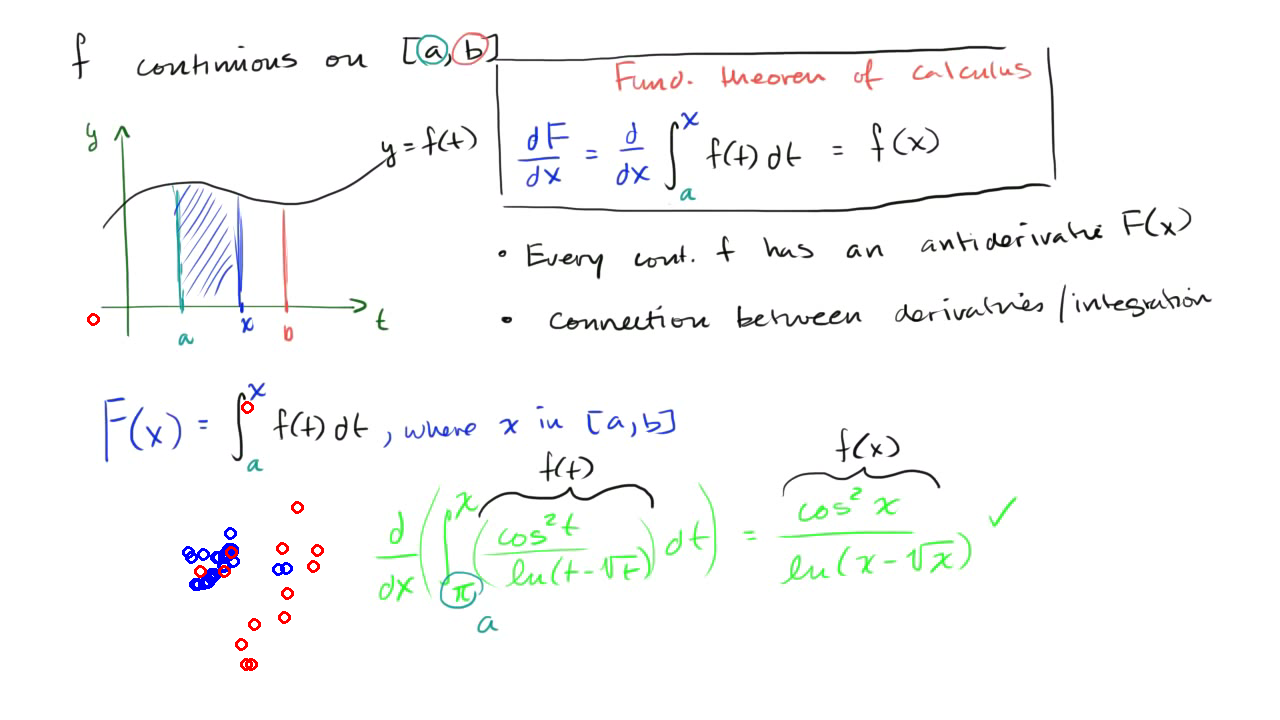 f continuous on [a,b]
Fund. theorem of calculus
dF/dx = d/dx ∫_a^x f(t) dt = f(x)
y
y = f(t)
a x b t
• Every cont. f has an antiderivative F(x)
• connection between derivatives/integration
F(x) = ∫_a^x f(t) dt, where x in [a,b]
f(t) f(x)
d/dx (∫_π^x (cos²t / ln(t-√t)) dt) = cos² x / ln(x-√x) ✓
a